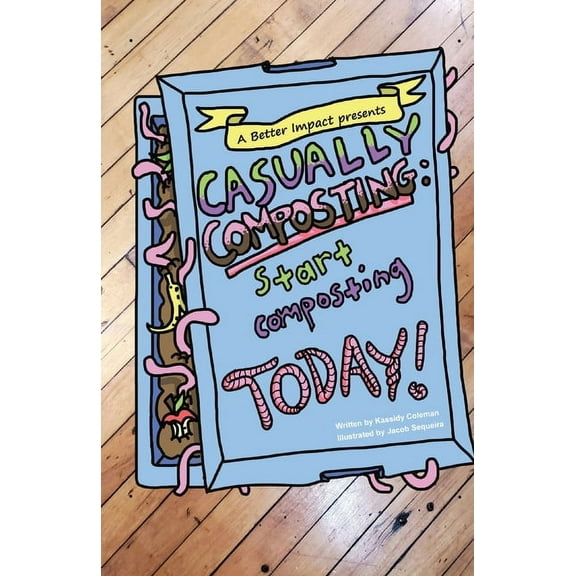 A Better Impact presents
CASUALLY
COMPOSTING:
Start
composting
TODAY!
Written by Kassidy Coleman
Illustrated by Jacob Sequeira